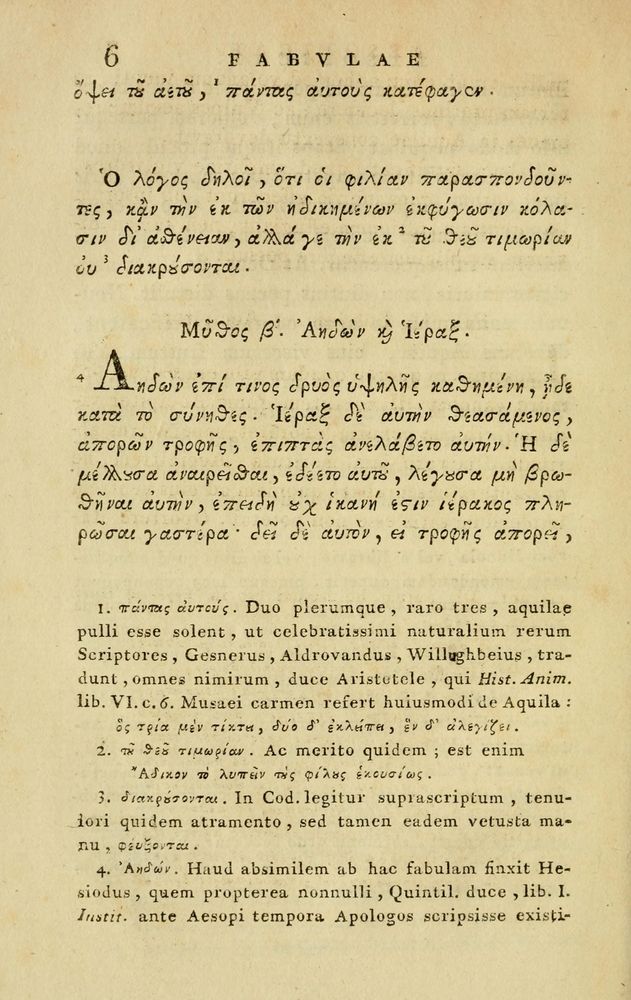 6 FABVLAE
ὄψει τοῦ ἀετοῦ, ¹ πάντας ἀυτοὺς κατέφαγον.
Ὁ λόγος δηλοῖ, ὅτι ὁι φιλίαν παρασπονδοῦν-
τες, κᾂν τὴν ἐκ τῶν ἠδικημένων ἐκφύγωσιν κόλα-
σιν δι' ἀσθένειαν, ἀλλά γε τὴν ἐκ ² τοῦ θεοῦ τιμωρίαν
ὀυ ³ διακρούσονται.
Μῦθος β'. Ἀηδὼν καὶ Ἱέραξ.
⁴ Ἀηδὼν ἐπί τινος δρυὸς ὑψηλῆς καθημένη, ᾖδε
κατὰ τὸ σύνηθες. Ἱέραξ δὲ ἀυτὴν θεασάμενος,
ἀπορῶν τροφῆς, ἐπιπτὰς ἀνελάβετο ἀυτήν. Ἡ δὲ
μέλλουσα ἀναιρεῖσθαι, ἐδέετο ἀυτοῦ, λέγουσα μὴ βρω-
θῆναι ἀυτὴν, ἐπειδὴ οὐχ ἱκανή ἐστιν ἱέρακος πλη-
ρῶσαι γαστέρα· δεῖ δὲ ἀυτὸν, ἐι τροφῆς ἀπορεῖ,
1. πάντας ἀυτούς. Duo plerumque, raro tres, aquilae
pulli esse solent, ut celebratissimi naturalium rerum
Scriptores, Gesnerus, Aldrovandus, Willughbeius, tra-
dunt, omnes nimirum, duce Aristotele, qui Hist. Anim.
lib. VI. c. 6. Musaei carmen refert huiusmodi de Aquila:
ὃς τρία μὲν τίκτει, δύο δ' ἐκλέπει, ἓν δ' ἀλεγίζει.
2. τοῦ θεοῦ τιμωρίαν. Ac merito quidem; est enim
Ἄδικον τὸ λυπεῖν τοὺς φίλους ἑκουσίως.
3. διακρούσονται. In Cod. legitur suprascriptum, tenu-
iori quidem atramento, sed tamen eadem vetusta ma-
nu, φεύξονται.
4. Ἀηδών. Haud absimilem ab hac fabulam finxit He-
siodus, quem propterea nonnulli, Quintil. duce, lib. I.
Instit. ante Aesopi tempora Apologos scripsisse existi-